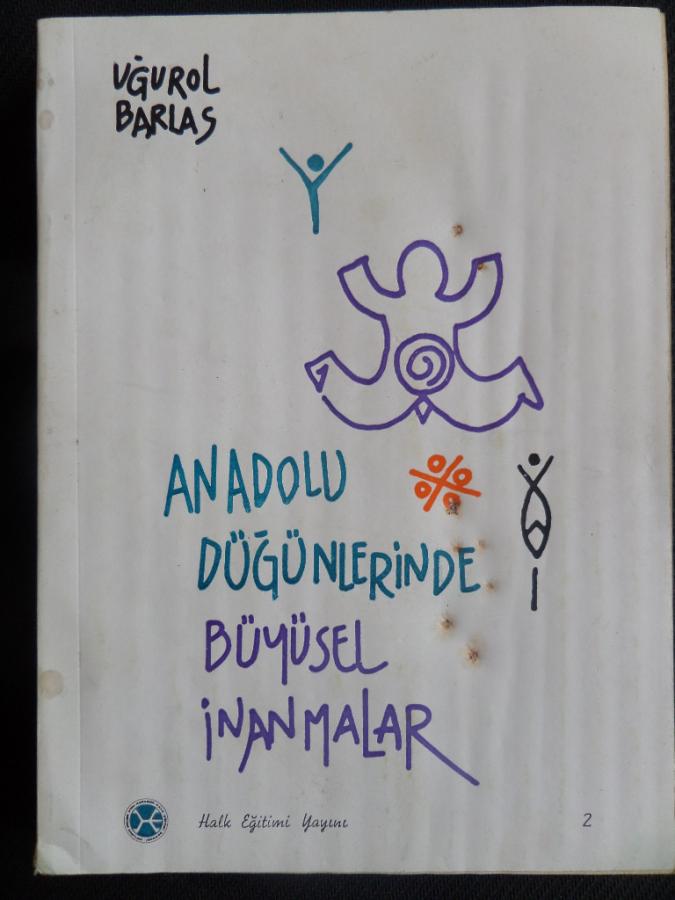 UĞUROL
BARLAS
ANADOLU
DÜĞÜNLERİNDE
BÜYÜSEL
İNANMALAR
Halk Eğitimi Yayını 2